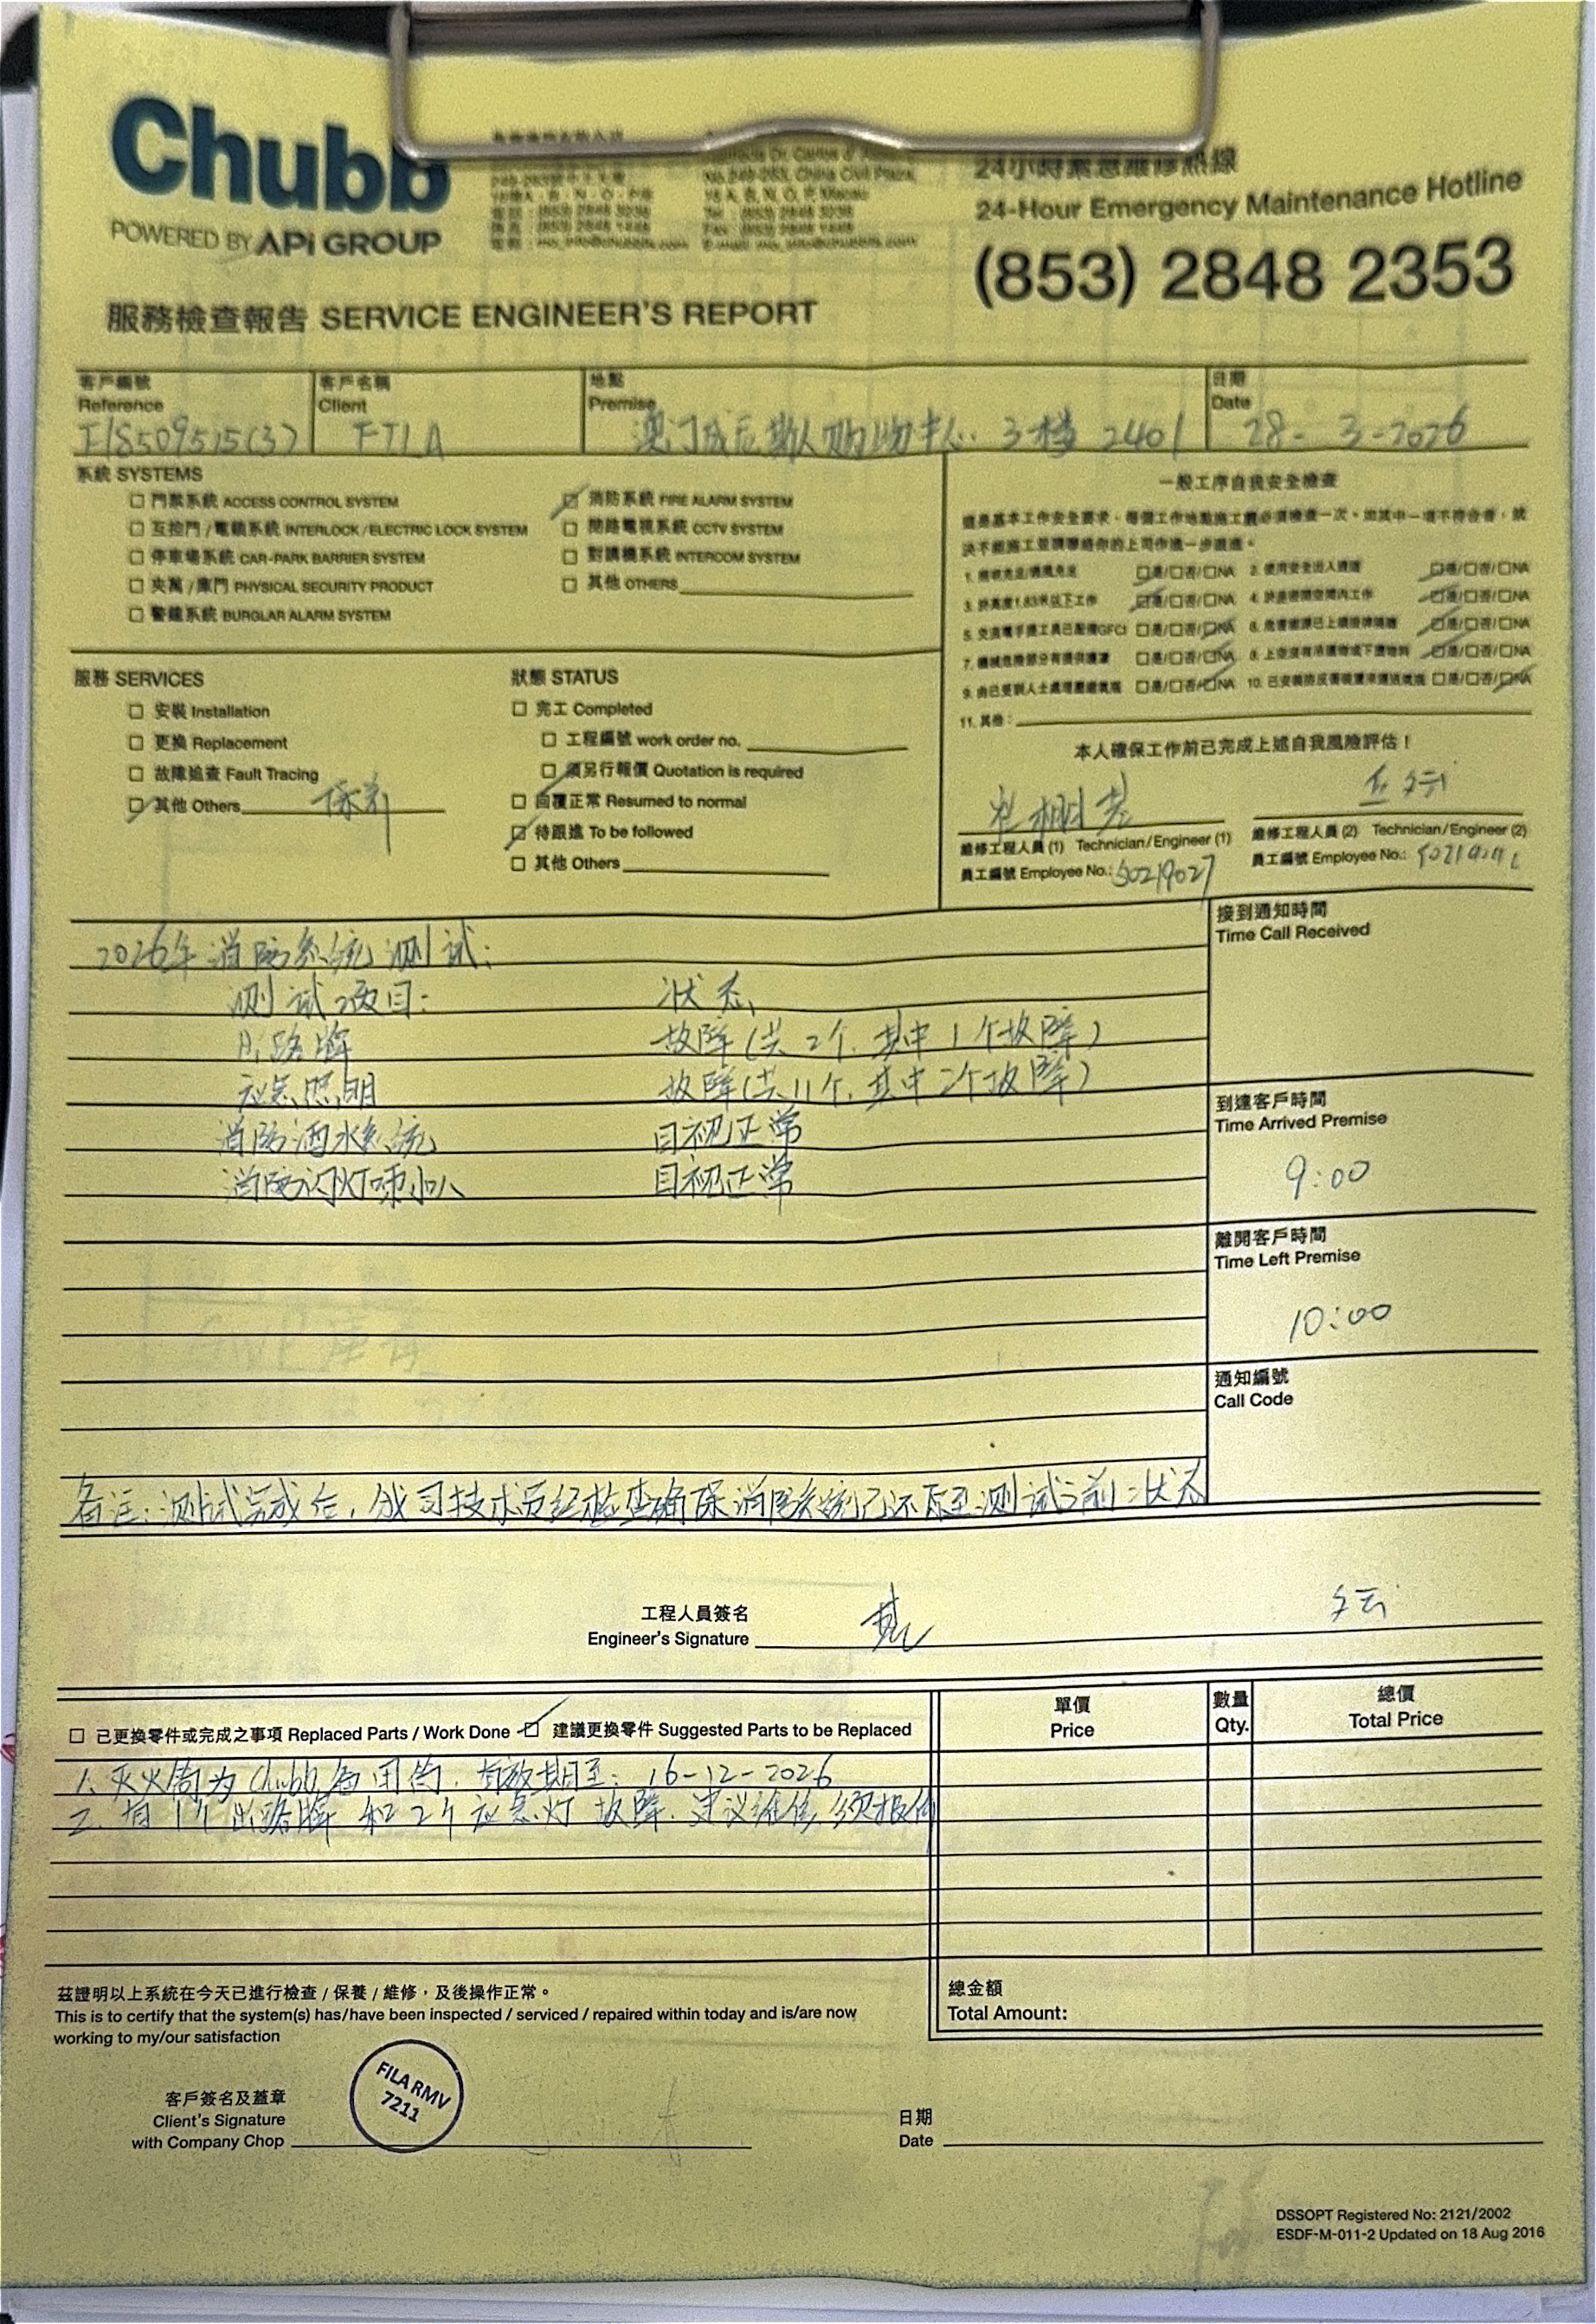 Chubb
POWERED BY APi GROUP
24小時緊急維修熱線
24-Hour Emergency Maintenance Hotline
(853) 2848 2353
服務檢查報告 SERVICE ENGINEER'S REPORT
客戶編號 Reference
客戶名稱 Client
地點 Premise
日期 Date
FIS509515(3)
澳门威尼斯人购物中心 3楼 2401
28-3-2026
系統 SYSTEMS
門禁系統 ACCESS CONTROL SYSTEM
互控門/電鎖系統 INTERLOCK/ELECTRIC LOCK SYSTEM
停車場系統 CAR-PARK BARRIER SYSTEM
夾萬/庫門 PHYSICAL SECURITY PRODUCT
警鐘系統 BURGLAR ALARM SYSTEM
消防系統 FIRE ALARM SYSTEM
閉路電視系統 CCTV SYSTEM
對講機系統 INTERCOM SYSTEM
其他 OTHERS
一般工序自我安全檢查
3. 於高度1.83米以下工作 是/否/NA
4. 於非密閉空間內工作 是/否/NA
5. 交流電手提工具已配備GFCI 是/否/NA
7. 機械危險部分有提供護罩 是/否/NA
11. 其他:
本人確保工作前已完成上述自我風險評估!
維修工程人員(1) Technician/Engineer (1)
員工編號 Employee No.: 50219027
維修工程人員(2) Technician/Engineer (2)
員工編號 Employee No.:
服務 SERVICES
安裝 Installation
更換 Replacement
故障追查 Fault Tracing
其他 Others 保养
狀態 STATUS
完工 Completed
工程編號 work order no.
須另行報價 Quotation is required
回覆正常 Resumed to normal
待跟進 To be followed
其他 Others
2026年消防系统测试:
测试项目: 状态
出路牌 故障(共2个.其中1个故障)
应急照明 故障(共11个.其中2个故障)
消防洒水系统 目视正常
消防闪灯 目视正常
备注:测试完成后,我司技术员已检查确保消防系统已还原至测试之前状态
接到通知時間
Time Call Received
到達客戶時間
Time Arrived Premise
9:00
離開客戶時間
Time Left Premise
10:00
通知編號
Call Code
工程人員簽名
Engineer's Signature
已更換零件或完成之事項 Replaced Parts / Work Done
建議更換零件 Suggested Parts to be Replaced
單價 Price
數量 Qty.
總價 Total Price
1. 灭火筒为Chubb备用筒.有效期至: 16-12-2026
2. 有1个出路牌和2个应急灯故障.建议维修,须报价
茲證明以上系統在今天已進行檢查/保養/維修,及後操作正常。
This is to certify that the system(s) has/have been inspected / serviced / repaired within today and is/are now
working to my/our satisfaction
總金額
Total Amount:
客戶簽名及蓋章
Client's Signature
with Company Chop
FILA RMV
7211
日期
Date
DSSOPT Registered No: 2121/2002
ESDF-M-011-2 Updated on 18 Aug 2016